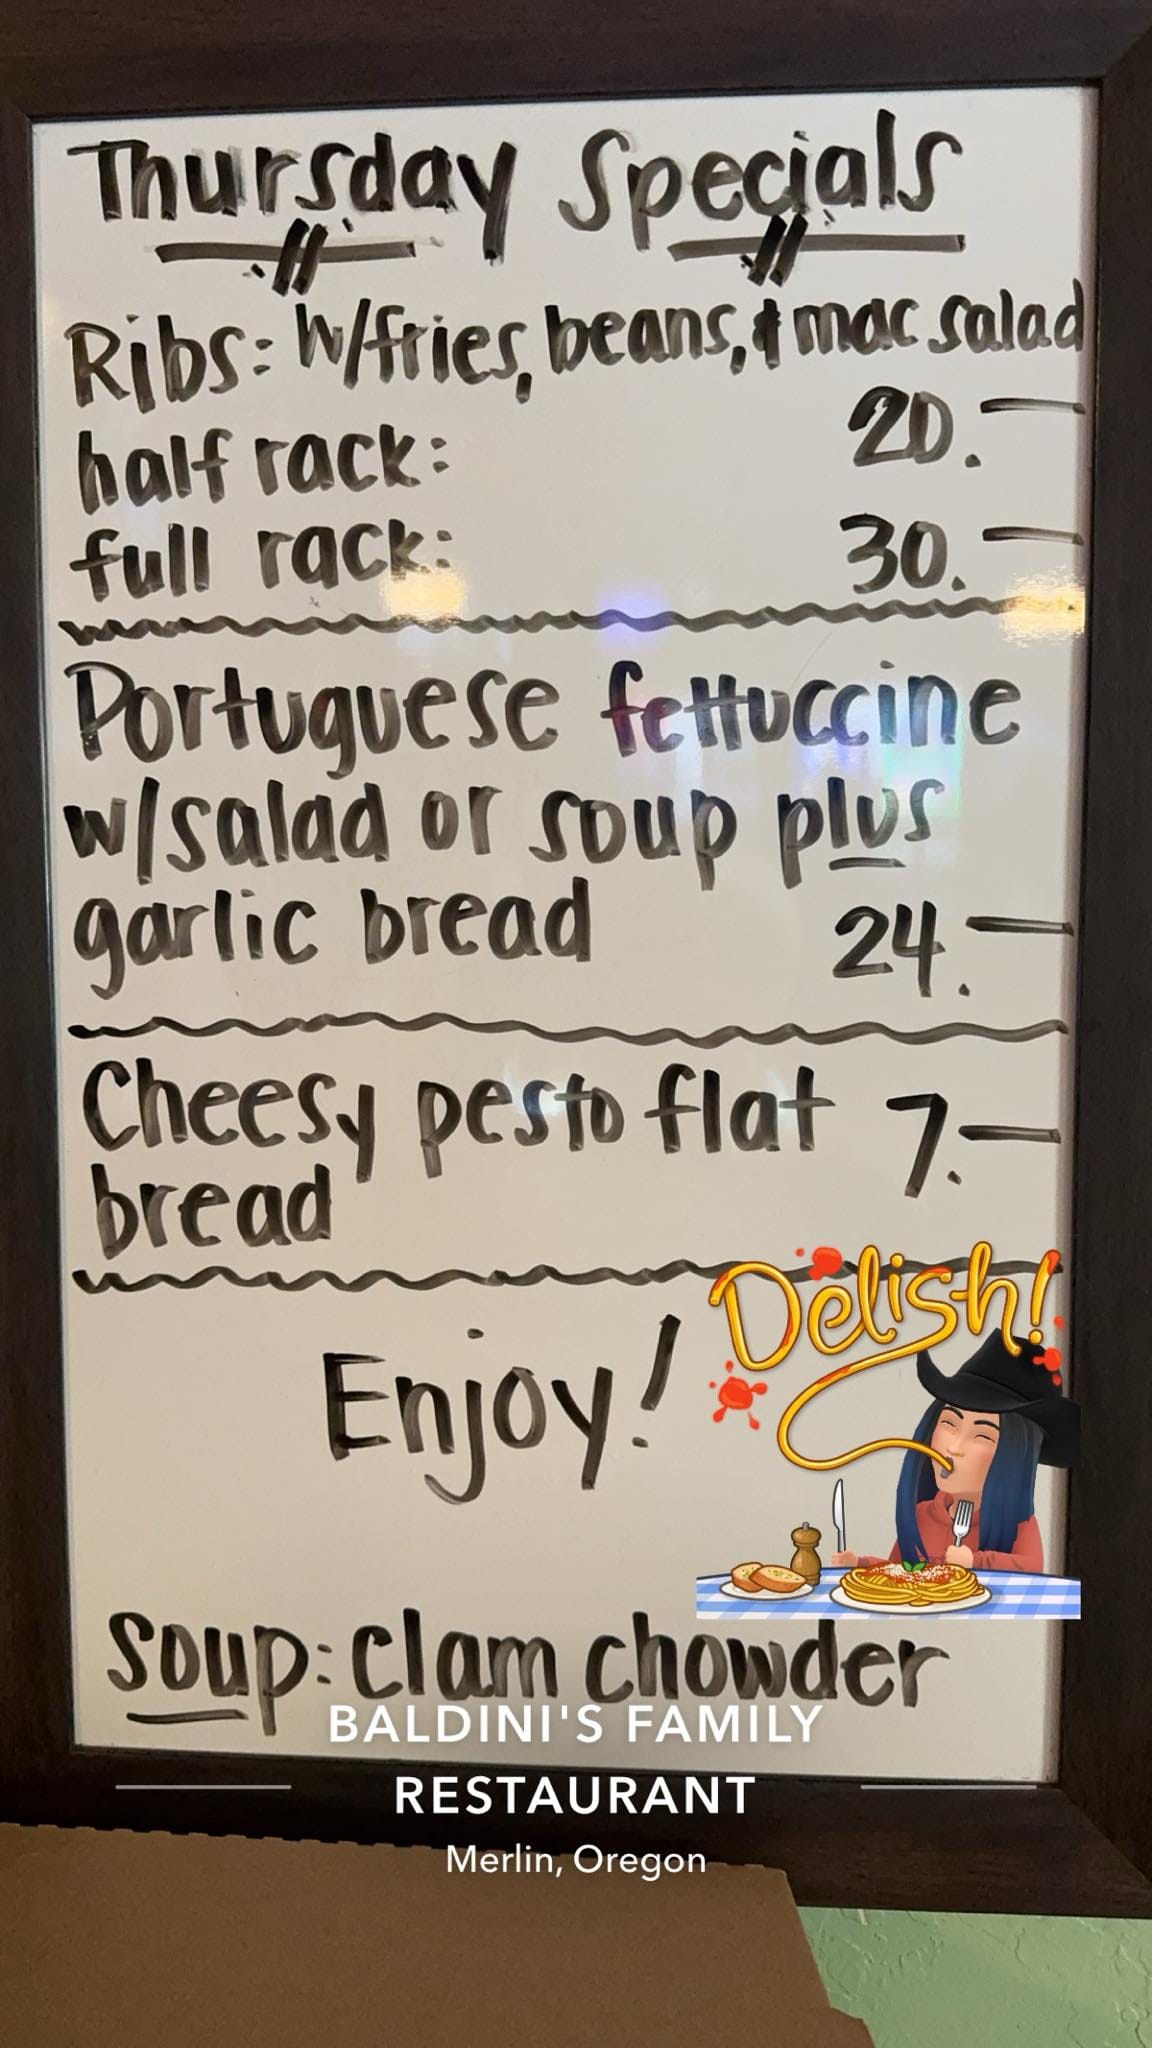 Thursday Specials
Ribs: w/fries, beans, & mac salad
half rack: 20.—
full rack: 30.—
Portuguese fettuccine
w/salad or soup plus
garlic bread 24.—
Cheesy pesto flat 7.—
bread
Delish!
Enjoy!
Soup: clam chowder
BALDINI'S FAMILY
RESTAURANT
Merlin, Oregon